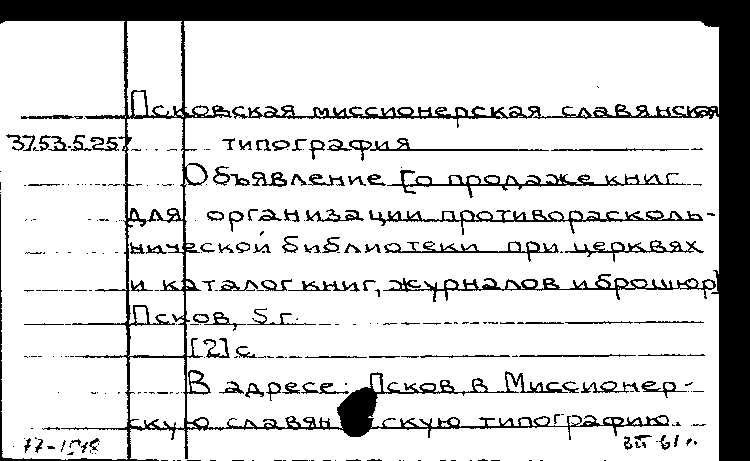 Псковская миссионерская славянская
37.53.5.257 типография
Объявление [о продаже книг
для организации противорасколь-
нической библиотеки при церквях
и каталог книг, журналов и брошюр]
Псков, б.г.
[2] с.
В адресе: Псков, в Миссионер-
скую славянскую типографию.